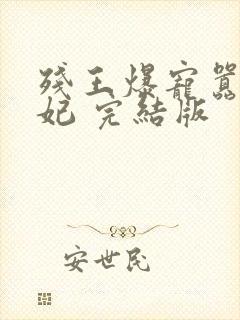 残王爆寵囂
妃 完結版
安世民